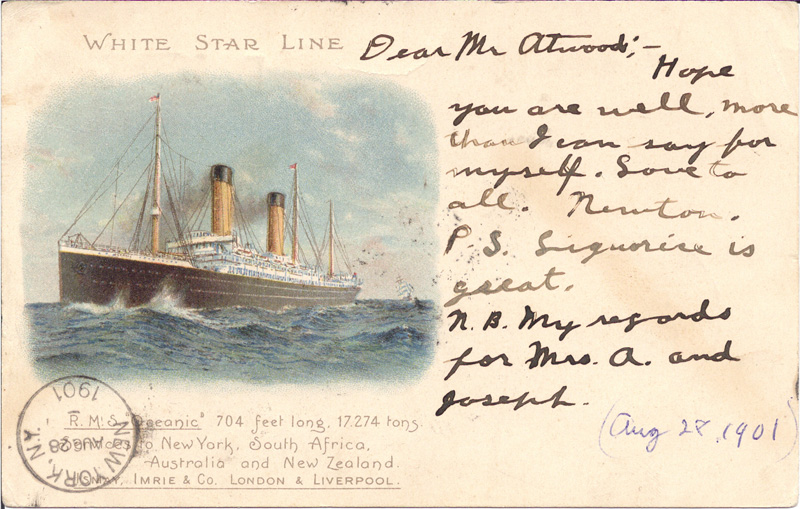 WHITE STAR LINE
Dear Mr Atwood;–
Hope
you are well, more
than I can say for
myself. Love to
all. Newton.
P.S. is
great.
N.B. My regards
for Mrs. A. and
Joseph.
(Aug 28, 1901)
R.M.S. "Oceanic" 704 feet long, 17.274 tons.
Services to New York, South Africa,
Australia and New Zealand.
ISMAY, IMRIE & CO. LONDON & LIVERPOOL.
NEW YORK N.Y.
AUG 28
1901